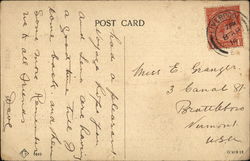 POST CARD
Had a pleasant
voyage hope you
and Lena are having
a good time till I
come back, and then
some more. Remember
me to all friends
Miss E. Granger.
3 Canal St
Brattleboro
Vermont
USA